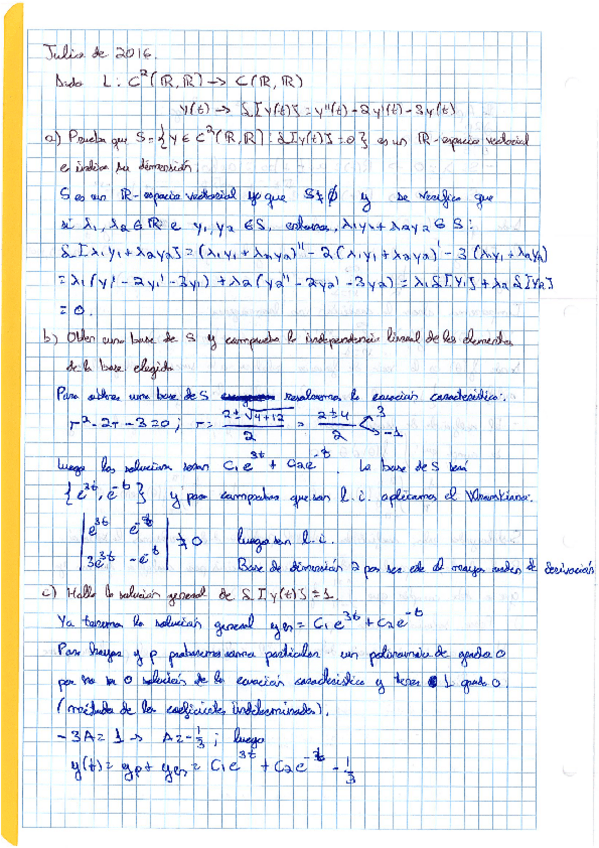 Julio de 2016.
Dado L: C²(ℝ,ℝ) → C(ℝ,ℝ)
y(t) → L[y(t)] = y''(t) - 2y'(t) - 3y(t)
a) Prueba que S = {y ∈ C²(ℝ,ℝ) : L[y(t)] = 0} es un ℝ-espacio vectorial
e indica su dimensión.
S es un ℝ-espacio vectorial ya que S ≠ ∅ y se verifica que
si λ1, λ2 ∈ ℝ e y1, y2 ∈ S, entonces, λ1y1 + λ2y2 ∈ S:
L[λ1y1 + λ2y2] = (λ1y1 + λ2y2)'' - 2(λ1y1 + λ2y2)' - 3(λ1y1 + λ2y2)
= λ1(y1' - 2y1' - 3y1) + λ2(y2'' - 2y2' - 3y2) = λ1 L[y1] + λ2 L[y2]
= 0.
b) Obten una base de S y comprueba la independencia lineal de los elementos
de la base elegida
Para obtener una base de S resolvemos la ecuación característica:
r² - 2r - 3 = 0 ; r = (2 ± √(4+12))/2 = (2 ± 4)/2 3 -1
Luego las soluciones serán C1e^3t + C2e^-t. La base de S será
{e^3t, e^-t} y para comprobar que son l.i. aplicamos el Wronskiano:
|e^3t e^-t| ≠ 0 luego son l.i.
|3e^3t -e^-t| Base de dimensión 2 por ser ese el mayor orden de derivación
c) Halla la solución general de L[y(t)] = 1.
Ya tenemos la solución general = C1e^3t + C2e^-t
Para hayar yp probaremos como particular un polinomio de grado 0
por no ser 0 solución de la ecuación característica y tener 1 grado 0.
(método de los coeficientes indeterminados).
-3A = 1 → A = -1/3 ; luego
y(t) = yp + = C1e^3t + C2e^-t - 1/3